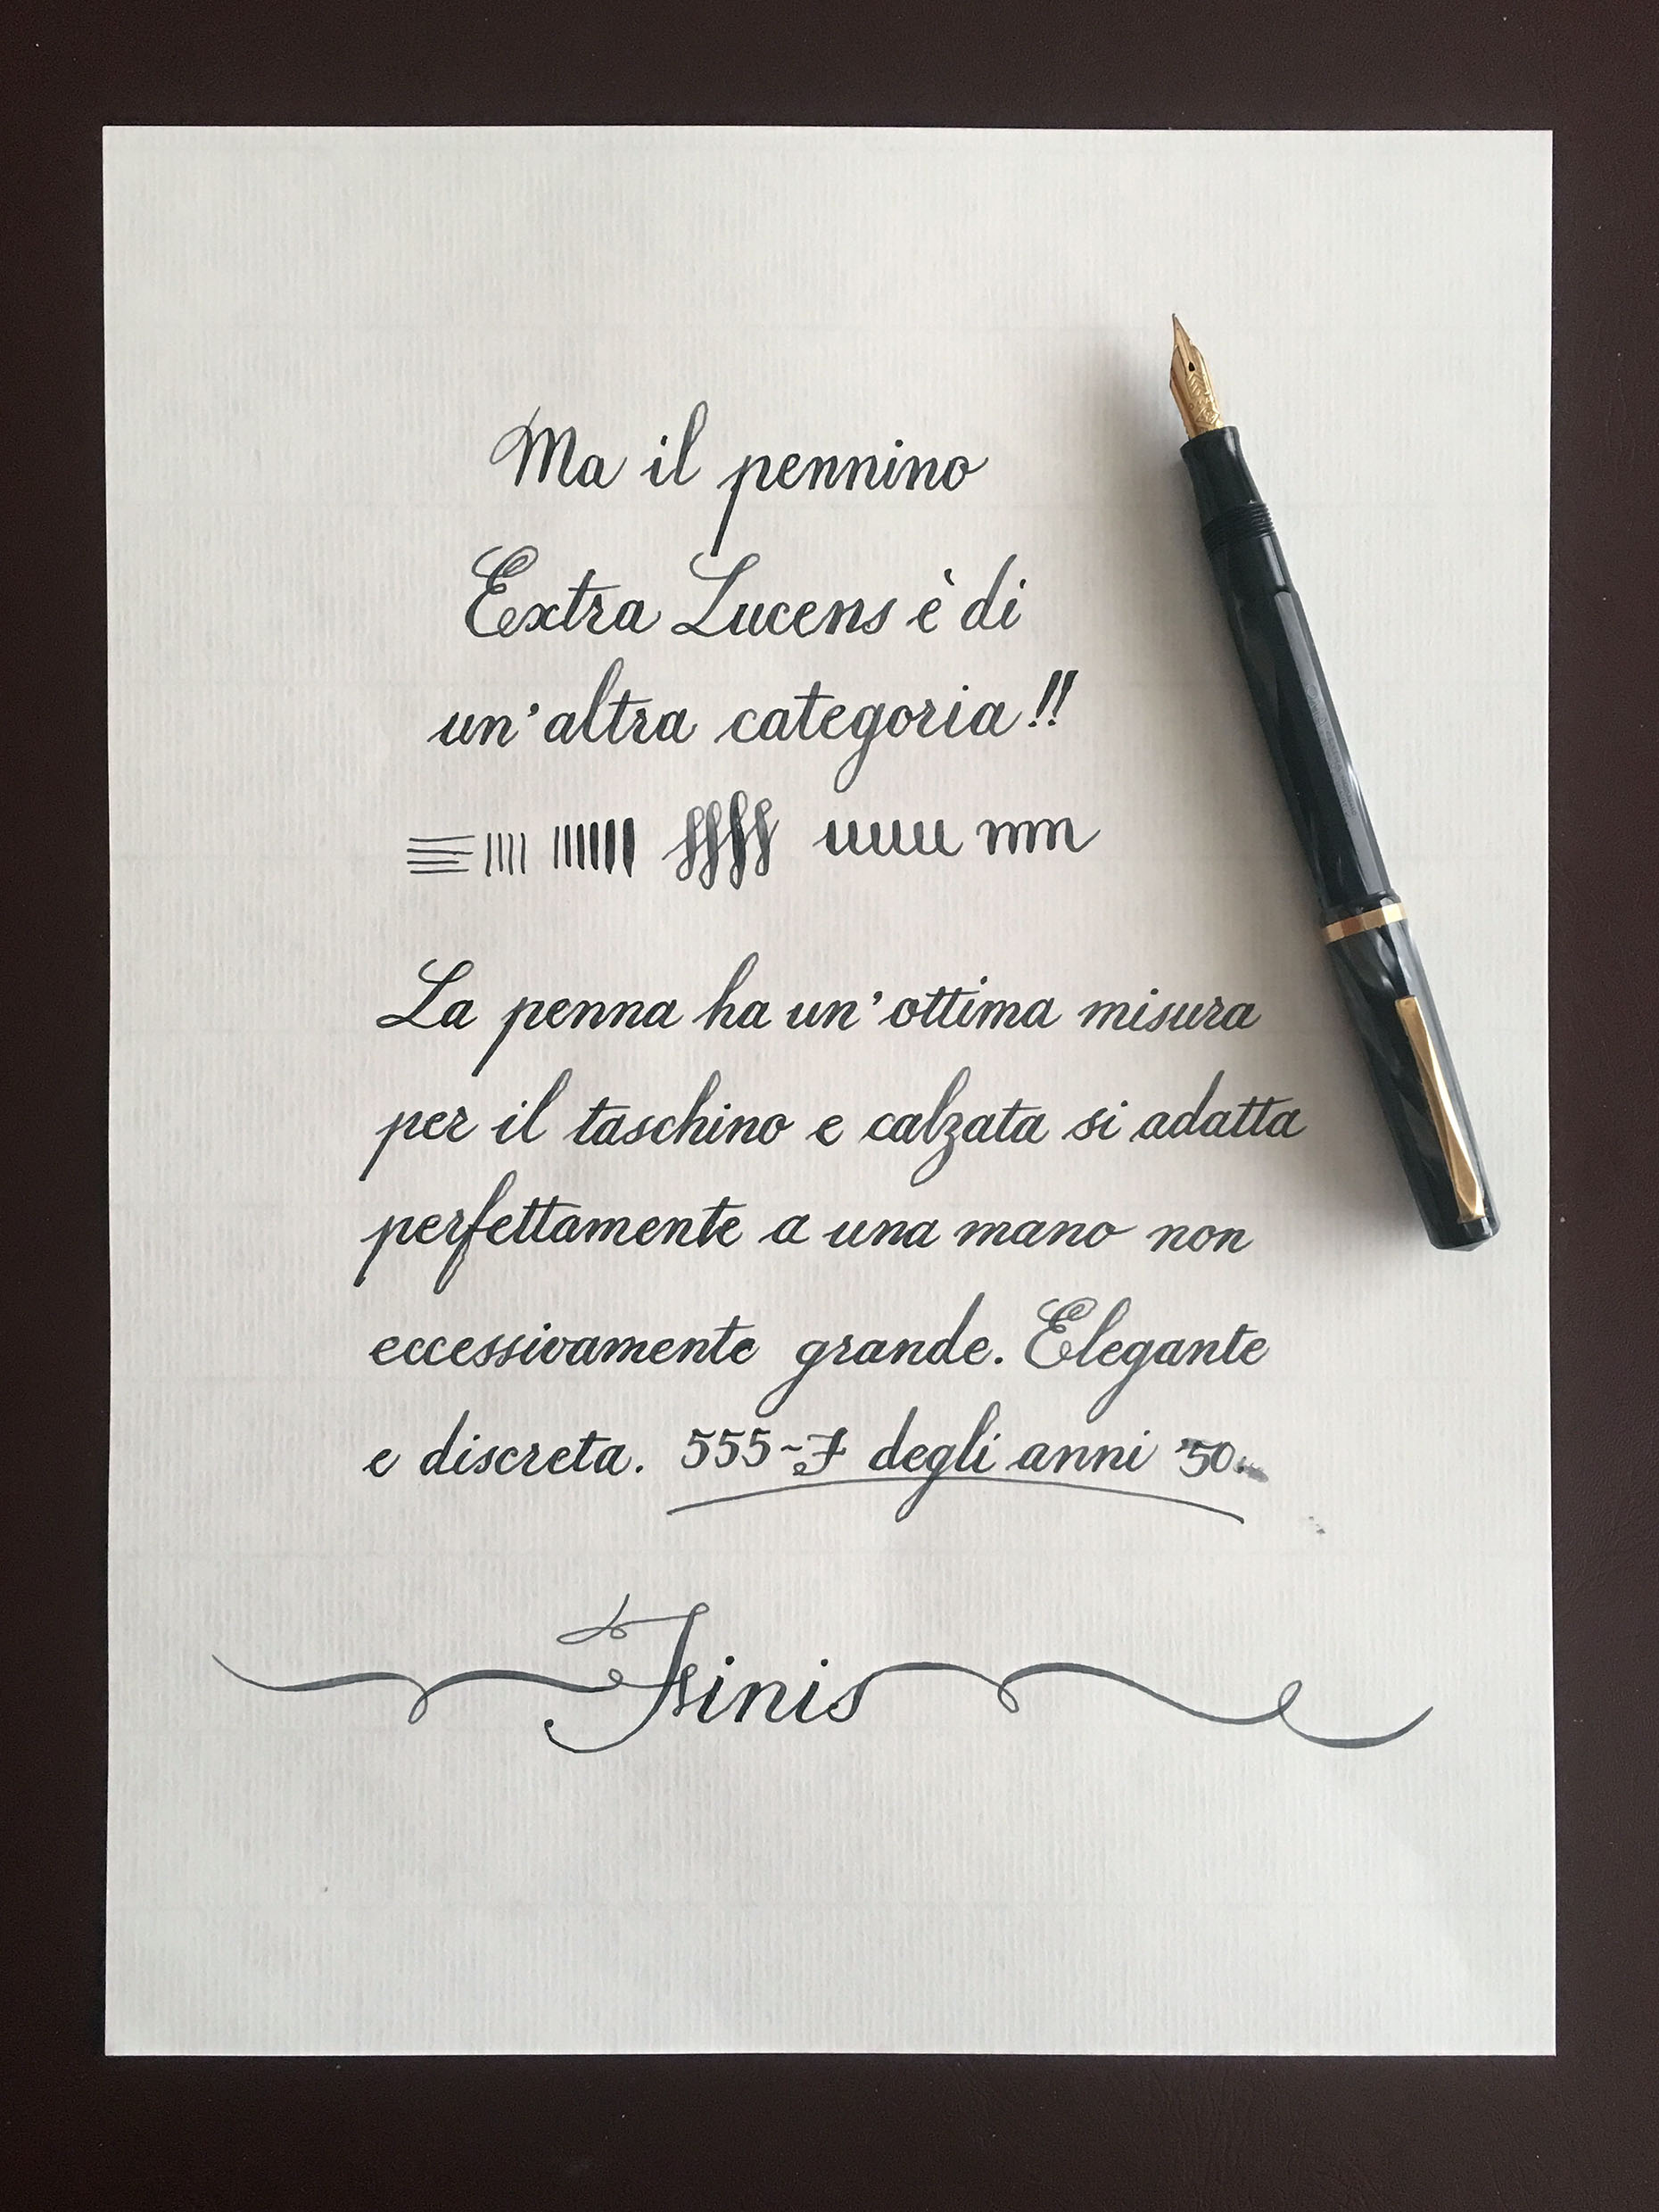 Ma il pennino
Extra Lucens è di
un'altra categoria!!
uuuu mm
La penna ha un'ottima misura
per il taschino e calzata si adatta
perfettamente a una mano non
eccessivamente grande. Elegante
e discreta. 555-F degli anni '50.
Finis